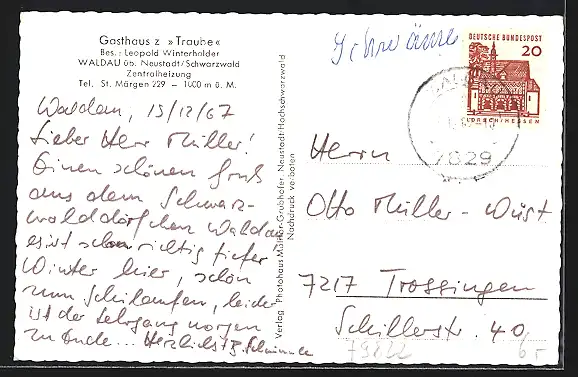 Gasthaus z. »Traube«
Bes.: Leopold Winterhalder
WALDAU üb. Neustadt/Schwarzwald
Zentralheizung
Tel. St. Märgen 229 – 1000 m ü. M.
Waldau, 15/12/67
Lieber Herr Müller!
Einen schönen Gruß
aus dem Schwarz-
walddörfchen Waldau
es ist schon richtig tiefer
Winter hier, schön
zum Schilaufen, leider
ist der Lehrgang morgen
zu Ende... Herzlichst
Verlag Photohaus Müller-Grubhofer, Neustadt-Hochschwarzwald
Nachdruck verboten
DEUTSCHE BUNDESPOST
20
LORSCH/HESSEN
7829
Herrn
Otto Müller-Wüst
7217 Trossingen
Schillerstr. 40